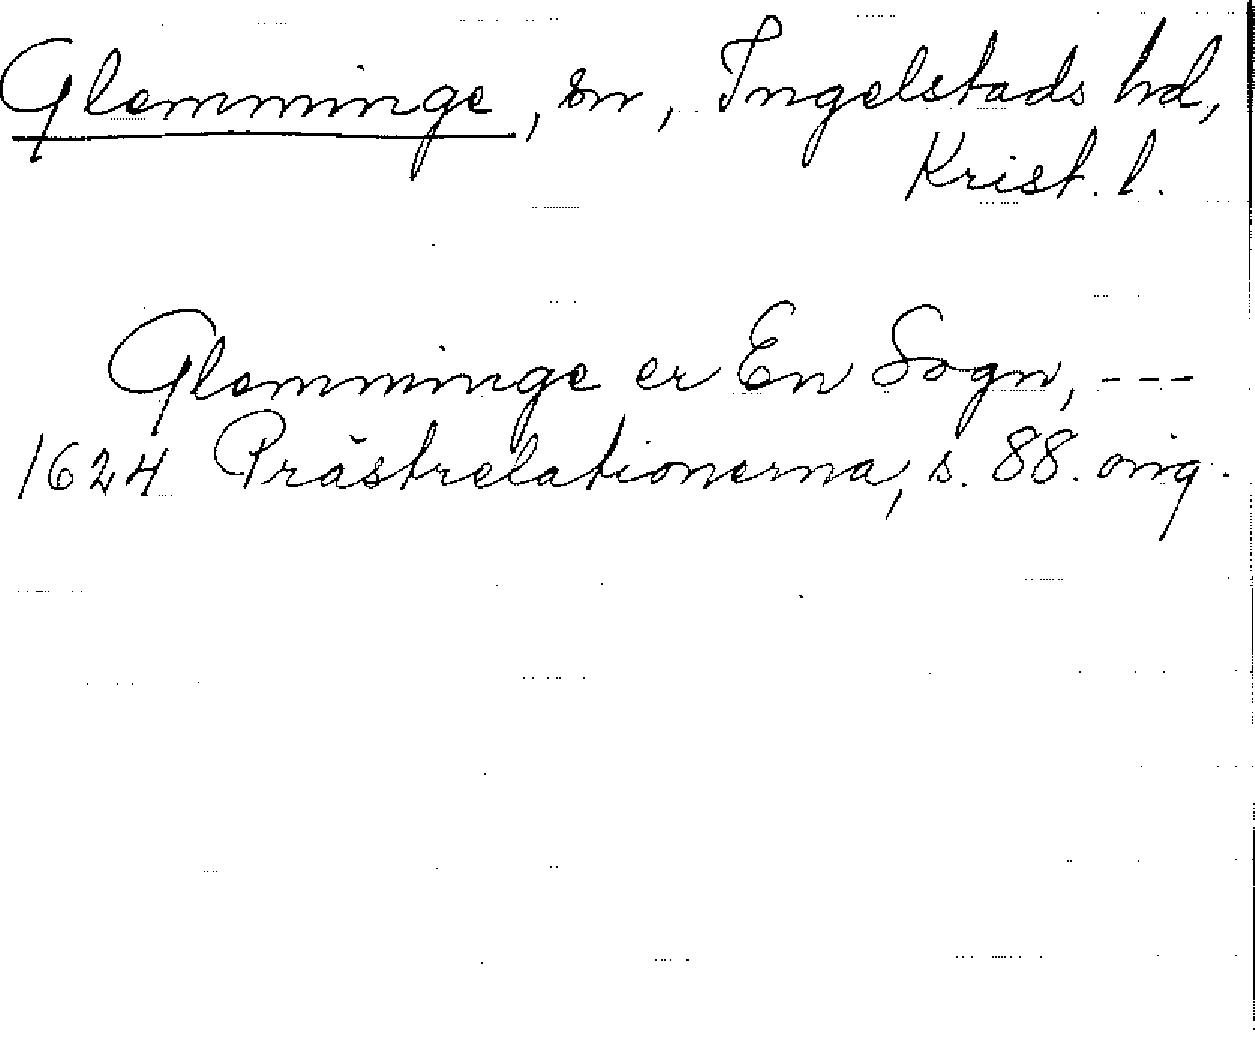 Glemminge, sn, Ingelstads hd,
Krist. l.
Glemminge er En Sogn, ---
1624 Prästrelationerna, s. 88. orig.